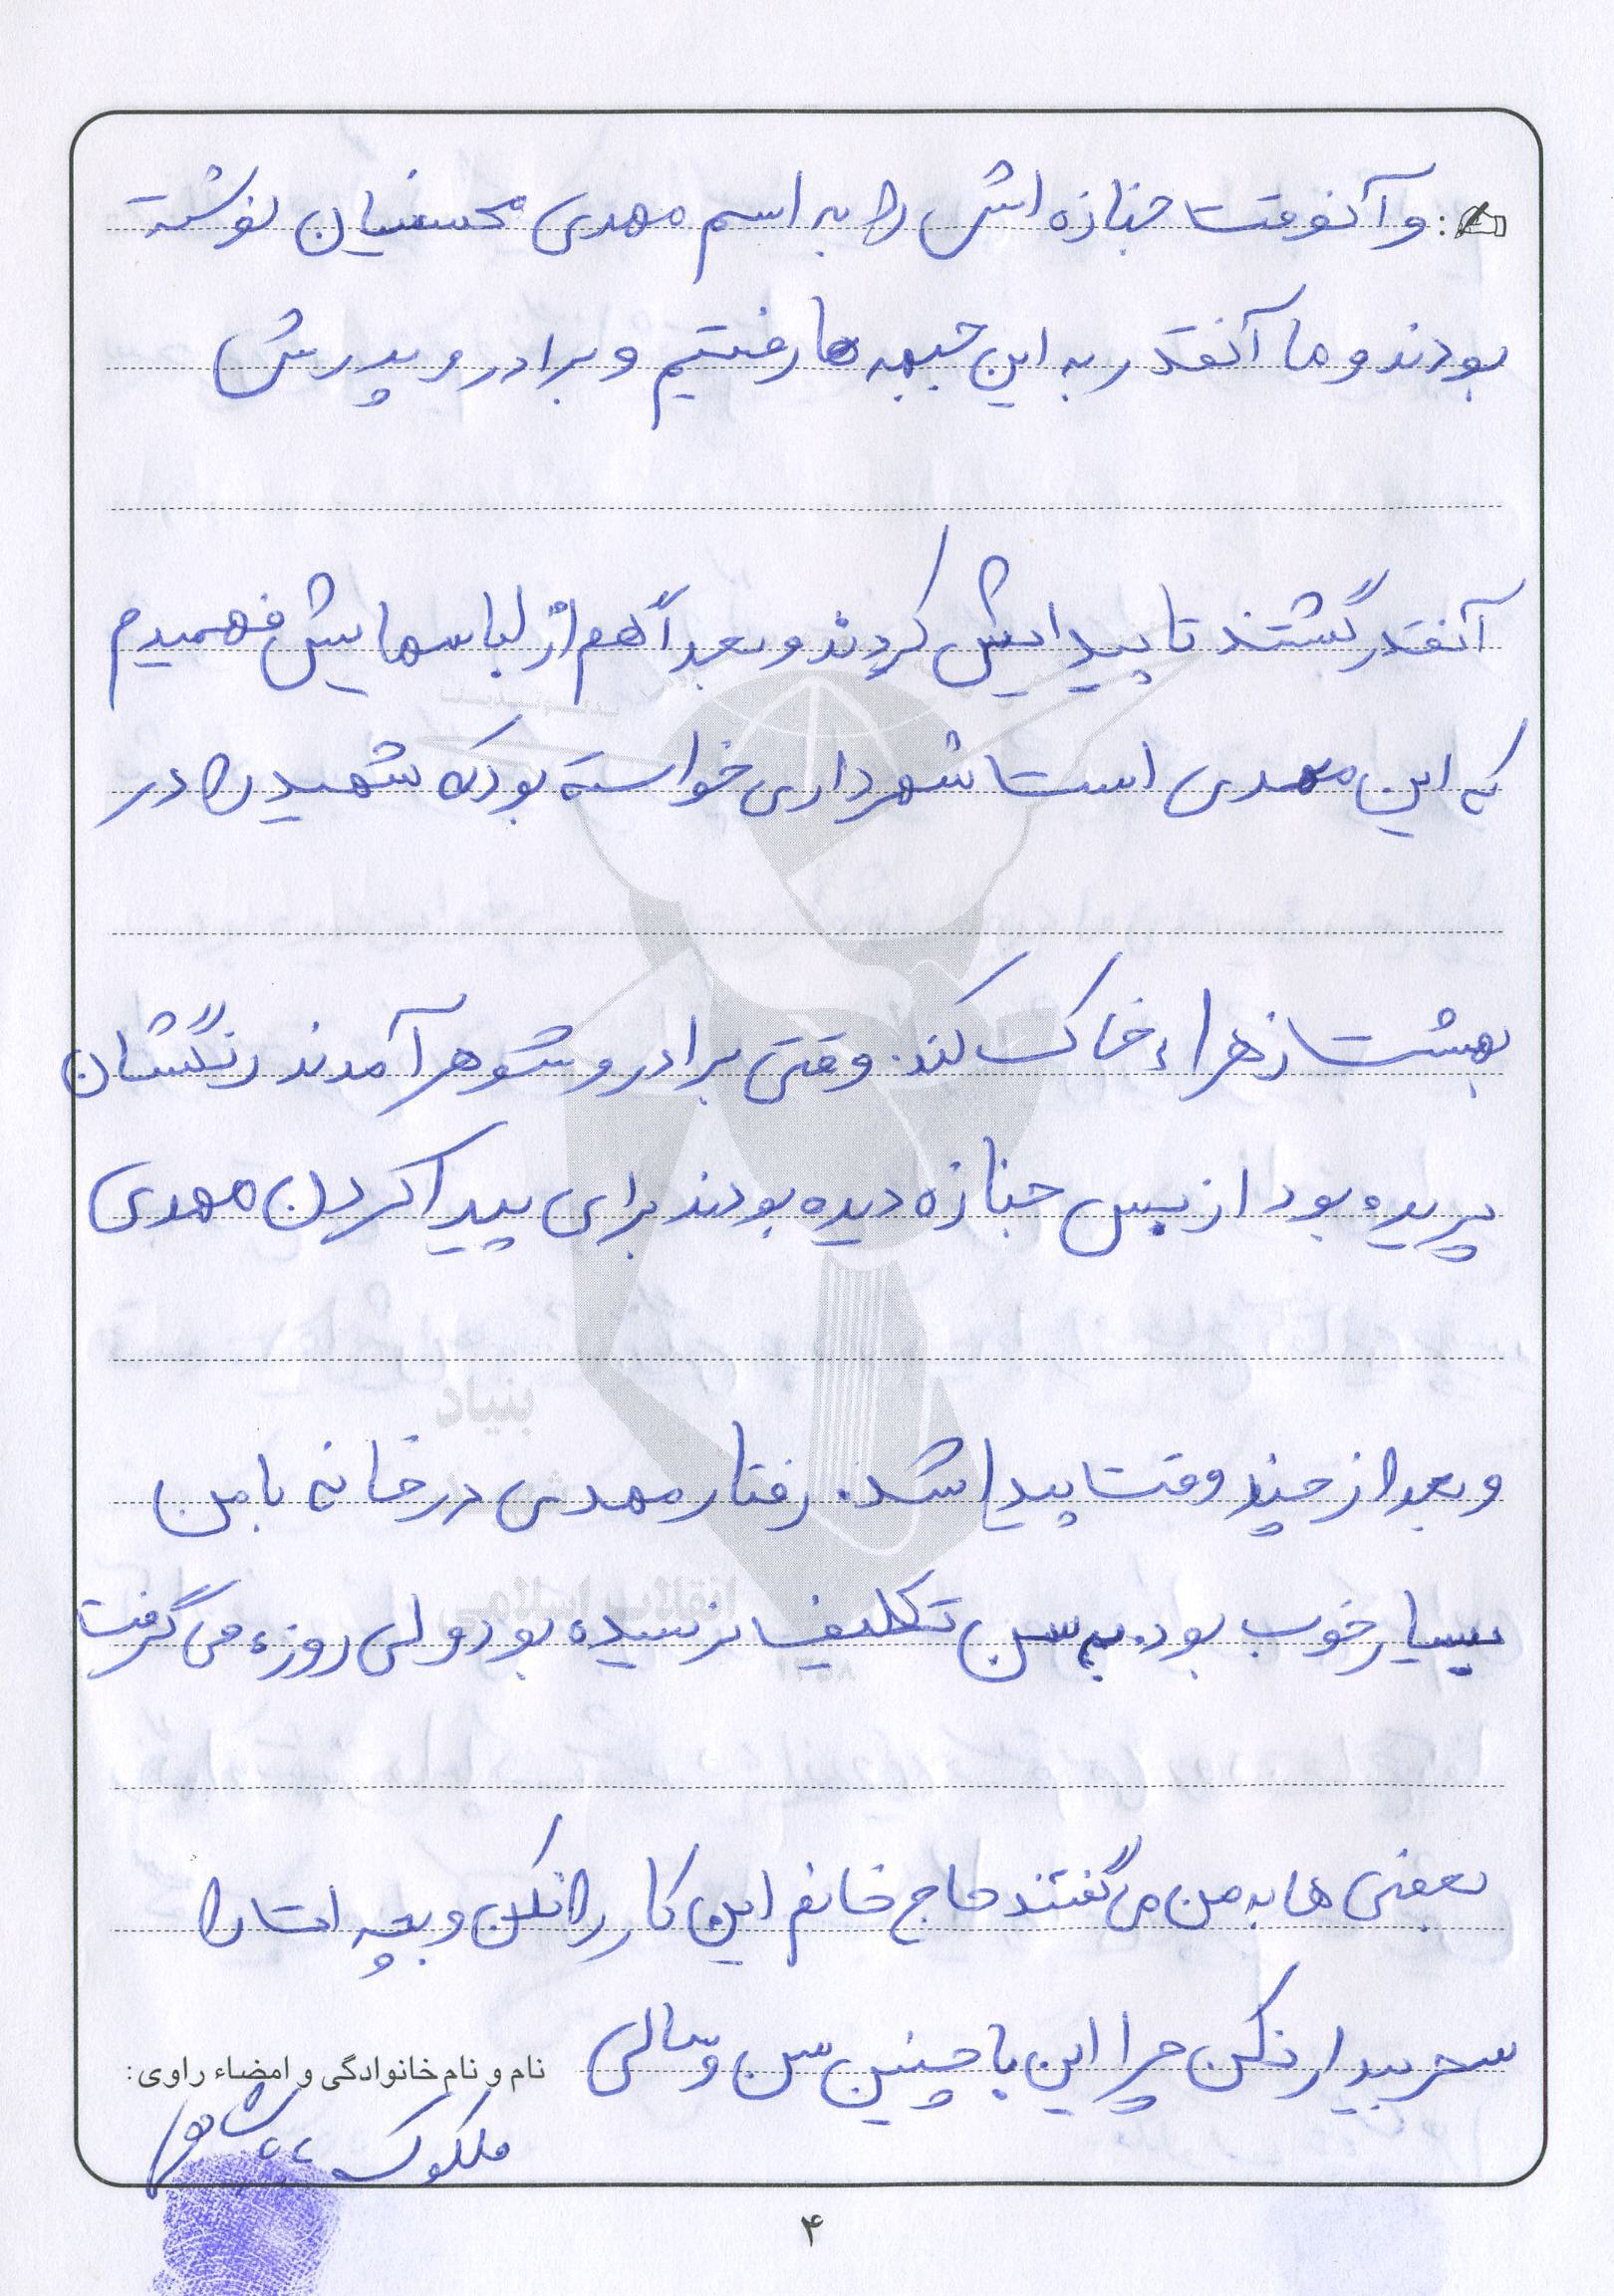 و آنوقت جنازه اش را به اسم مهدی محسنیان نوشته
بودند و ما آنقدر به این جبهه ها رفتیم و برادر و پدرش
آنقدر گشتند تا پیدایش کردند و بعداً هم از لباسهایش فهمیدم
که این مهدی است شهرداری خواسته بود که شهید را در
بهشت زهراء خاک کند. وقتی برادر و شوهر آمدند رنگشان
پریده بود از بس جنازه دیده بودند برای پیدا کردن مهدی
و بعد از چند وقت پیدا شد. رفتار مهدی در خانه با من
بسیار خوب بود. به سن تکلیف نرسیده بود ولی روزه می گرفت
بعضی ها به من می گفتند حاج خانم این کار را نکن و بچه ات را
سحر بیدار نکن چرا این با چنین سن و سالی
نام و نام خانوادگی و امضاء راوی:
ملکوک
۴